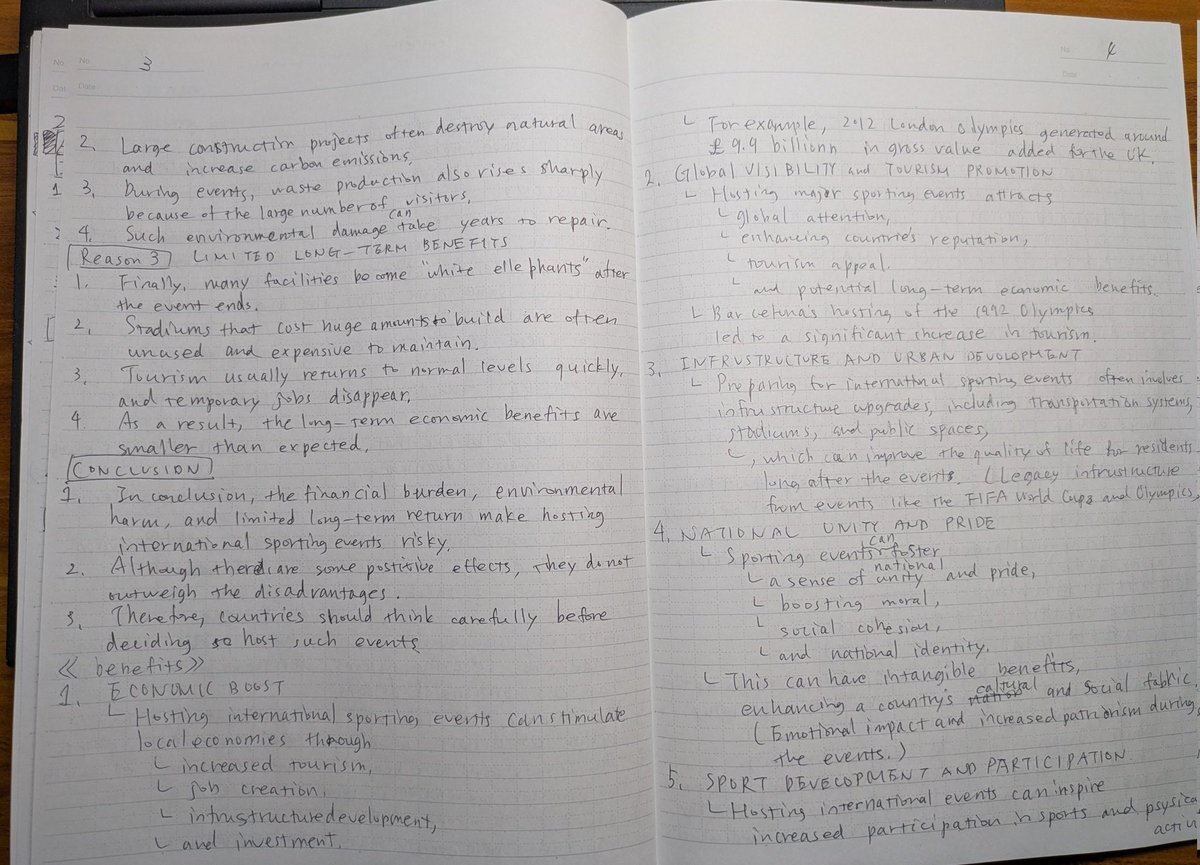 No. 3
Date
2
2. Large construction projects often destroy natural areas
and increase carbon emissions.
1 3. During events, waste production also rises sharply
because of the large number of visitors.
can
4. Such environmental damage take years to repair.
Reason 3 LIMITED LONG-TERM BENEFITS
1. Finally, many facilities become "white ellephants" after
the event ends.
2. Stadiums that cost huge amounts to build are often
unused and expensive to maintain.
3. Tourism usually returns to normal levels quickly,
and temporary jobs disappear.
4 As a result, the long-term economic benefits are
smaller than expected.
CONCLUSION
1. In conclusion, the financial burden, environmental
harm, and limited long-term return make hosting
international sporting events risky.
2. Although there are some postitive effects, they do not
outweigh the disadvantages.
3. Therefore, countries should think carefully before
deciding so host such events.
≪ benefits ≫
1. ECONOMIC BOOST
└ Hosting international sporting events can stimulate
local economies through
└ increased tourism,
└ job creation,
└ infrustructure development,
└ and investment.
No. 4
Date
└ For example, 2012 London Olympics generated around
£ 9.9 billionn in gross value added for the UK.
2. Global VISIBILITY and TOURISM PROMOTION
└ Hosting major sporting events attracts
└ global attention,
└ enhancing countrie's reputation,
└ tourism appeal.
└ and potential long-term economic benefits.
└ Barcetuna's hosting of the 1992 Olympics
led to a significant increase in tourism.
3. INFRUSTRUCTURE AND URBAN DEVULOPMENT
└ Preparing for international sporting events often involves
infrustructure upgrades, including transportation systems,
stadiums, and public spaces,
└, which can improve the quality of life for residents
long after the events. (Legacy infrustructure
from events like the FIFA World Cups and Olympics,
4. NATIONAL UNITY AND PRIDE
can
└ Sporting events foster
national
└ a sense of unity and pride,
└ boosting moral,
└ social cohesion,
└ and national identity.
└ This can have intangible benefits,
caltural
enhancing a country's and social fabric.
(Emotional impact and increased patriorism during
the events.)
5. SPORT DEVELOPMENT AND PARTICIPATION
└ Hosting international events can inspire
increased participation in sports and psysica
activ